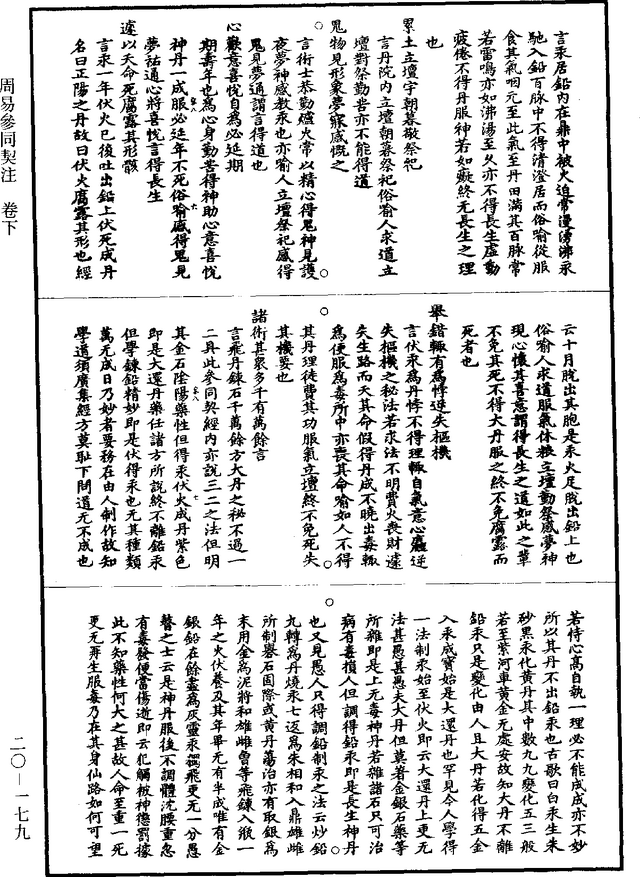 言汞居鉛內在鼎中被火迫常漫湧沸永
馳入鉛百脉中不得清澄居而俗喻從服
食其氣咽元至此氣至丹田滿其百脉常
若雷鳴亦如沸湯至久亦不得長生虛動
疲倦不得丹服神若如癡終无長生之理
也
累土立壇宇朝暮敬祭祀
言丹院內立壇朝暮祭祀俗喻人求道立
壇對祭勤苦亦不能得道
鬼物見形象夢寐感慨之
言術士恭勤爐火常以精心得鬼神見護
夜夢神感教汞也亦喻人立壇祭祀感得
鬼見夢通謂言得道也
心歡意喜悅自為必延期
期壽年也為心身勤苦得神助心意喜悅
神丹一成服必延年不死俗喻感得鬼見
夢祐通心將喜悅言得長生
遽以夭命死腐露其形骸
言汞一年伏火巳後吐出鉛上伏死成丹
名曰正陽之丹故曰伏火腐露其形也經
云十月脫出其胞是汞火足脫出鉛上也
俗喻人求道服氣休粮立壇勤祭感夢神
現心懷其喜意謂得長生之道如此之輩
不免其死不得大丹服之終不免腐露而
死者也
舉錯輙有為悖逆失樞機
言伏汞為丹悖不得理輙自氣意心麤逆
失樞機之秘法若求法不明費火喪財違
失生路而夭其命假得丹成不曉出毒輙
為便服為毒所中亦喪其命喻如人不得
其丹理徒費其功服氣立壇終不免死失
其機要也
諸術甚衆多千有萬餘言
言飛丹鍊石千萬餘方大丹之秘不過一
二具此參同契經內亦說三二之法但明
其金石陰陽藥性但得汞伏火成丹紫色
即是大還丹藥任諸方所說終不離鉛汞
但學鍊鉛精妙即是伏得汞也无其種類
萬无成日乃妙者要務在由人制作故知
學道須廣集經方莫恥下問道无不成也
若恃心高自執一理必不能成成亦不妙
所以其丹不出鉛汞也古歌曰白汞生朱
砂黑汞化黄丹其中數九九變化五三般
若至紫河車黄金无處安故知大丹不離
鉛汞只是變化由人且大丹若化得五金
入汞成寳始是大還丹也罕見今人學得
一法制汞始至伏火即云大還丹上更无
法甚愚甚愚夫大丹但莫著金銀石藥等
所雜即是上无毒神丹若雜諸石只可治
病有毒損人但調得鉛汞即是長生神丹
也又見愚人只得調鉛制汞之法云炒鉛
九轉為丹燒汞七返為朱相和入鼎雄雌
所制礜石固際或黄丹蕩治亦有取銀為
末用金為泥將和雄雌曾等飛鍊入㷟一
年之火伏養及其年畢无有半成唯有金
銀鉛在餘盡為灰靈汞獨飛更无一分愚
瞽之士云是神丹服後不調體沈腰重忽
有毒發便當傷逝即云犯觸被神德罰據
此不知藥性何大之甚故人命至重一死
更无再生服毒乃在其身仙路如何可望
周易參同契注 卷下
二〇—一七九